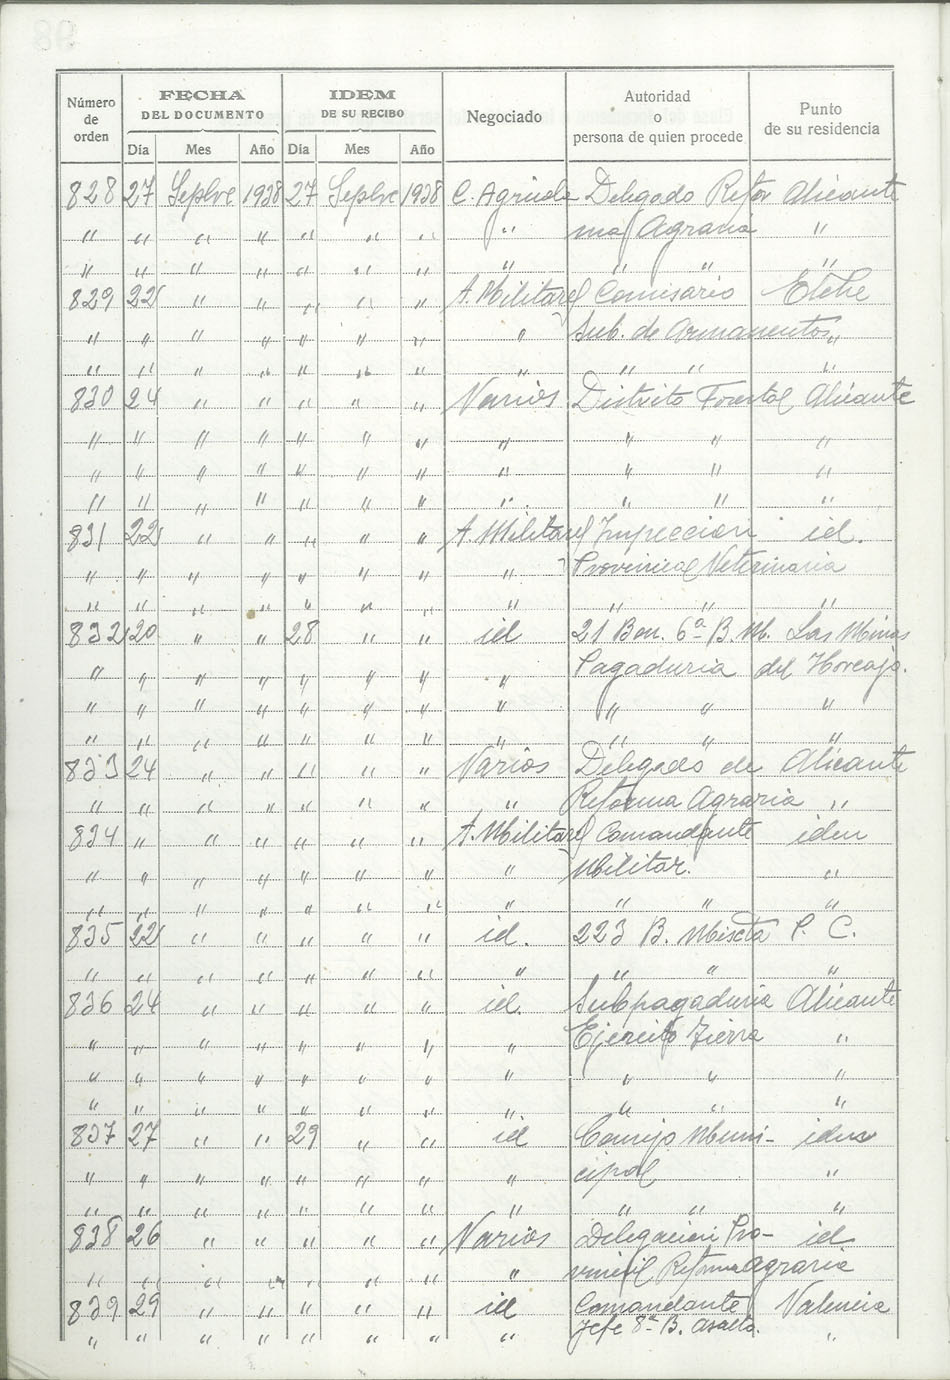 Número de orden | FECHA DEL DOCUMENTO | IDEM DE SU RECIBO | Negociado | Autoridad o persona de quien procede | Punto de su residencia
Día | Mes | Año | Día | Mes | Año
828 27 Sepbre 1938 27 Sepbre 1938 C. Agricola Delegado Refor Alicante
" " " " " " " " ma Agraria "
" " " " " " " " " " "
829 22 " " " " " A. Militares Comisario Elche
" " " " " " " " Sub. de Armamentos "
" " " " " " " " " " "
830 24 " " " " " Varios Distrito Forestal Alicante
" " " " " " " " " " "
" " " " " " " " " " "
" " " " " " " " " " "
831 22 " " " " " A. Militares Inspeccion id.
" " " " " " " " Provincial Veterinaria
" " " " " " " " " " "
832 20 " " 28 " " id 21 Bon. 6ª B. M. Las Minas
" " " " " " " " Pagaduria del Horcajo.
" " " " " " " " " " "
" " " " " " " " " " "
833 24 " " " " " Varios Delegado de Alicante
" " " " " " " " Reforma Agraria "
834 " " " " " " A. Militares Comandante idem
" " " " " " " " Militar. "
" " " " " " " " " " "
835 22 " " " " " id. 223 B. Mixta P. C.
" " " " " " " " " " "
836 24 " " " " " id. Subpagaduria Alicante
" " " " " " " " Ejercito Tierra "
" " " " " " " " " " "
" " " " " " " " " " "
837 27 " " 29 " " id Consejo Muni- idem
" " " " " " " " cipal "
" " " " " " " " " " "
838 26 " " " " " Varios Delegacion Pro- id
" " " " " " " " vincial Reforma Agraria
839 29 " " " " " id Comandante Valencia
" " " " " " " " Jefe 8ª B. Asalto. "